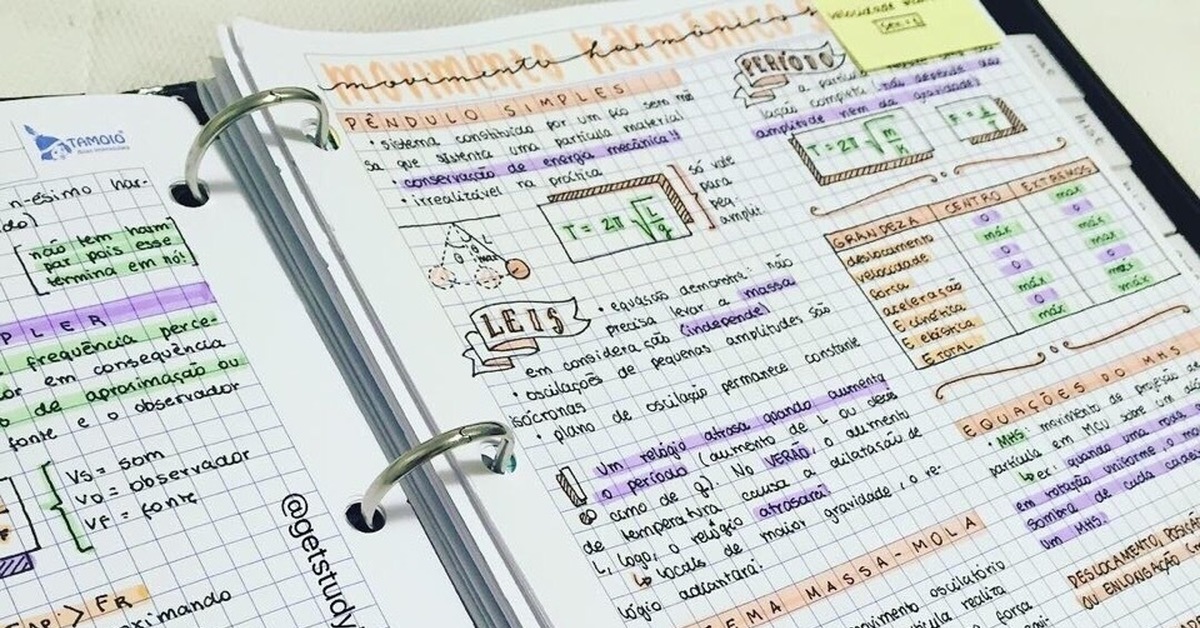 TAMOIO
n-ésimo har-
não tem harm
par pois esse
termina em nó!
PLER
frequência perce-
or em consequência
de aproximação ou
fonte e o observador
Vs = som
Vo = observador
Vf = fonte
> FR
oximando
@getstudy
movimento harmônico s
PÊNDULO SIMPLES
• sistema constituído por um fio sem mas
sa que sustenta uma partícula material
• conservação de energia mecânica!!
• irrealizável na prática
T = 2π √L/g
só vale
para
peq.
amplit.
θ
L
LEIS
• equação demonstra: não
precisa levar a massa
em consideração (independe)
• oscilações de pequenas amplitudes são
isócronas
• plano de oscilação permanece constante
Um relógio atrasa quando aumenta
o período (aumento de L ou decres
cimo de g). No VERÃO, o aumento
de temperatura causa a dilatação de
L, logo, o relógio atrasará!
↳ locais de maior gravidade, o re-
lógio adiantará!
EMA MASSA-MOLA
ovimento oscilatório
realiza
força
velocidade
PERÍODO
a partícula
lação completa (não depende da
amplitude nem da gravidade)
T = 2π √m/k
GRANDEZA CENTRO EXTREMOS
deslocamento 0 máx
velocidade máx 0
força 0 máx
aceleração 0 máx
E cinética máx 0
E elástica 0 máx
E TOTAL máx máx
EQUAÇÕES DO MHS
• MHS: movimento de projeção de
partícula em MCU sobre um diâ
↳ ex: quando uma roda
em rotação uniforme, o mo
sombra de cada cadei
um MHS.
DESLOCAMENTO, POSIÇÃ
OU ENLONGAÇÃO